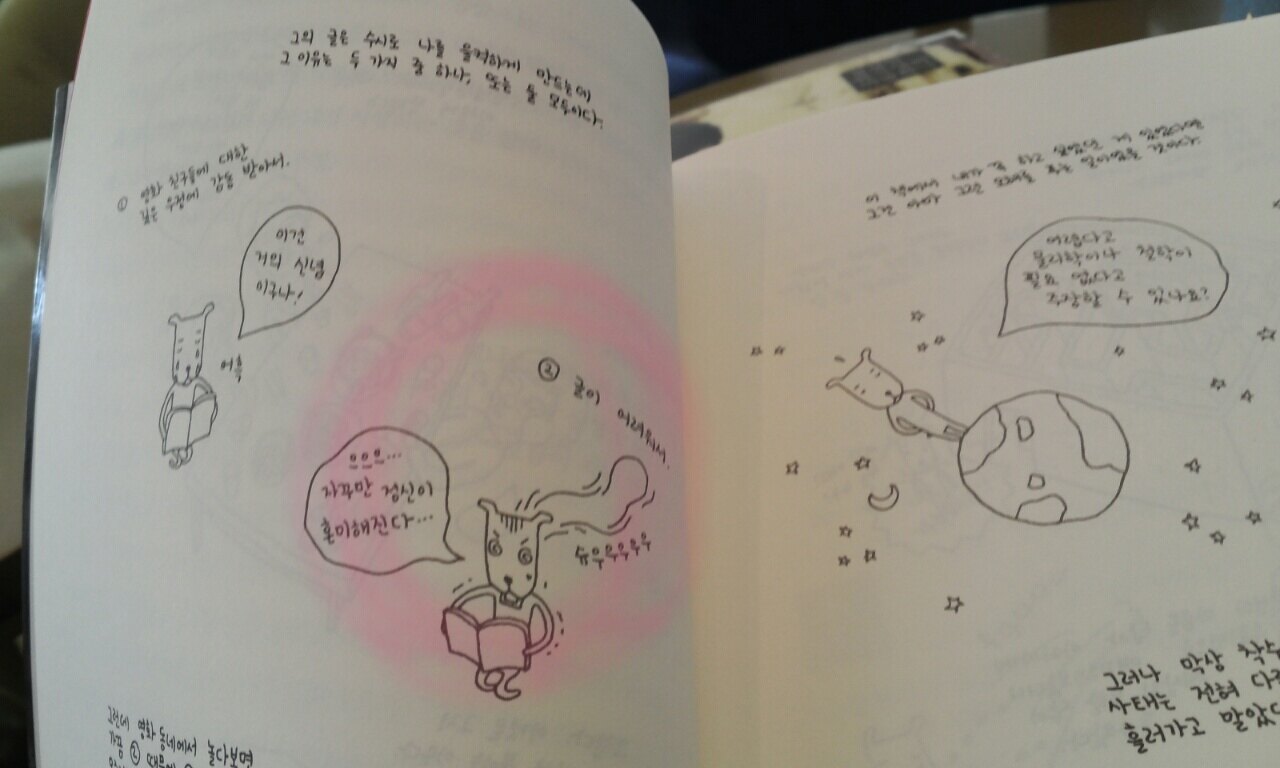 그의 글은 수시로 나를 울컥하게 만드는데
그 이유는 두 가지 중 하나, 또는 둘 모두이다.
① 영화 친구들에 대한
깊은 우정에 감동 받아서.
이건
거의 신념
이구나!
어흑
② 글이 어려워서.
으으으...
자꾸만 정신이
혼미해진다...
슈우우우우우
그런데 영화 동네에서 놀다보면
가끔 ② 때문에
이 책에서 내가 꼭 하고 싶었던 게 있었다면
그건 아마 그런 오해를 푸는 일이었을 것이다.
어렵다고
물리학이나 철학이
필요 없다고
주장할 수 있나요?
그러나 막상 착수
사태는 전혀 다
흘러가고 말았다